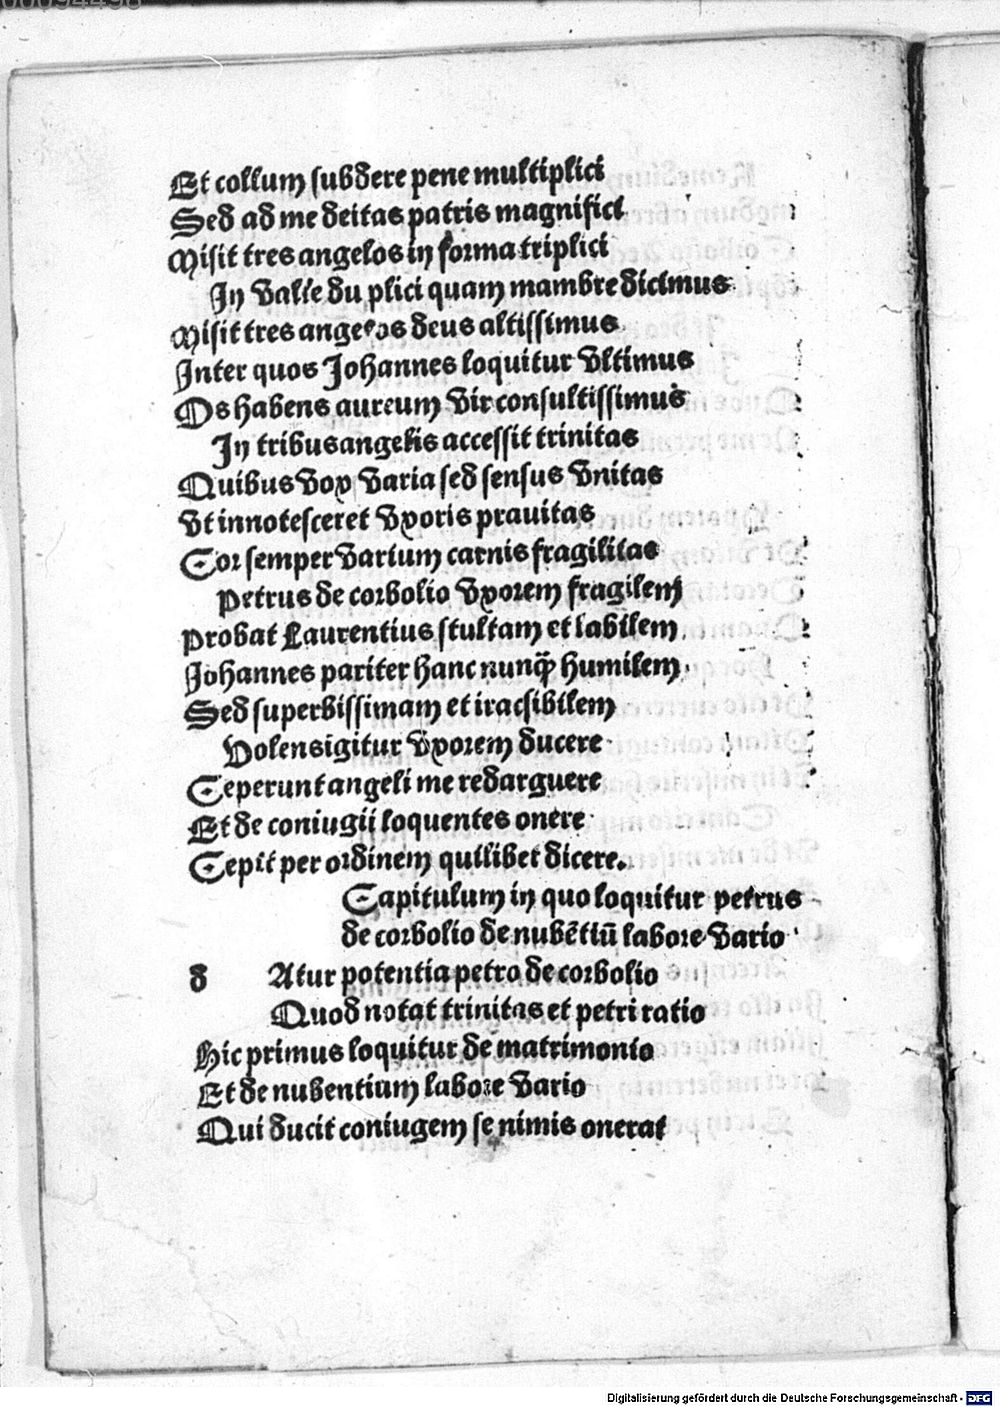 00094498
Et collum subdere pene multiplici
Sed ad me deitas patris magnifici
Misit tres angelos in forma triplici
In valle du plici quam mambre dicimus
Misit tres angelos deus altissimus
Inter quos Johannes loquitur vltimus
Os habens aureum vir consultissimus
In tribus angelis accessit trinitas
Quibus vox varia sed sensus vnitas
Vt innotesceret vxoris prauitas
Cor semper varium carnis fragilitas
Petrus de corbolio vxorem fragilem
Probat Laurentius stultam et labilem
Johannes pariter hanc nunq̃ humilem.
Sed superbissimam et iracsibilem
Volens igitur vxorem ducere
Ceperunt angeli me redarguere
Et de coniugii loquentes onere
Cepit per ordinem quilibet dicere.
Capitulum in quo loquitur petrus
de corbolio de nubẽtiũ labore vario
d Atur potentia petro de corbolio
Quod notat trinitas et petri ratio
Hic primus loquitur de matrimonio
Et de nubentium labore vario
Qui ducit coniugem se nimis onerat
Digitalisierung gefördert durch die Deutsche Forschungsgemeinschaft - DFG